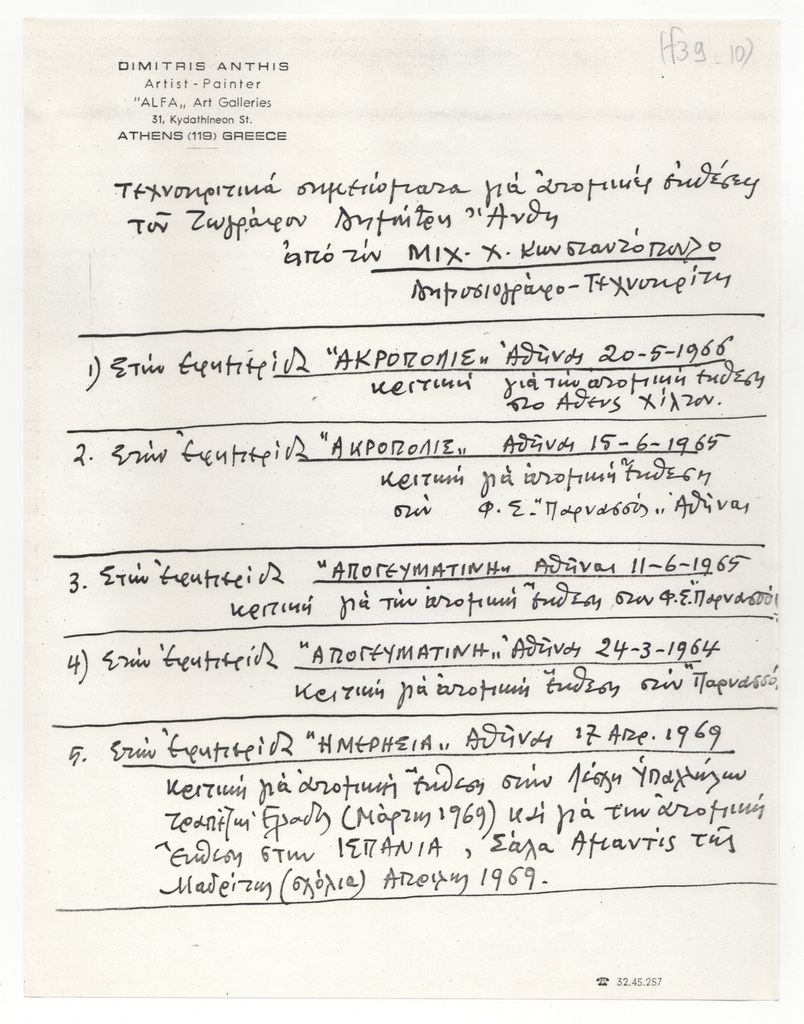 (f39-10)
DIMITRIS ANTHIS
Artist - Painter
"ALFA„ Art Galleries
31, Kydathineon St.
ATHENS (119) GREECE
Τεχνοκριτικά σημειώματα γιά ἀτομικές ἐκθέσεις
τοῦ Ζωγράφου Δημήτρη Ἄνθη
ἀπό τόν ΜΙΧ. Χ. Κωνσταντόπουλο
Δημοσιογράφο-Τεχνοκρίτη
1) Στήν ἐφημερίδα "ΑΚΡΟΠΟΛΙΣ„ Ἀθῆναι 20-5-1966
κριτική γιά τήν ἀτομική ἔκθεση
στο Αθενς Χίλτον.
2. Στήν ἐφημερίδα "ΑΚΡΟΠΟΛΙΣ„ Ἀθῆναι 15-6-1965
κριτική γιά ἀτομική ἔκθεση
στόν Φ.Σ. "Παρνασσός„ Ἀθῆναι
3. Στήν ἐφημερίδα "ΑΠΟΓΕΥΜΑΤΙΝΗ„ Ἀθῆναι 11-6-1965
κριτική γιά τήν ἀτομική ἔκθεση στον Φ.Σ. "Παρνασσό
4) Στήν ἐφημερίδα "ΑΠΟΓΕΥΜΑΤΙΝΗ„ Ἀθῆναι 24-3-1964
κριτική γιά ἀτομική ἔκθεση στόν "Παρνασσό
5. Στήν ἐφημερίδα "ΗΜΕΡΗΣΙΑ„ Ἀθῆναι 17 Απρ. 1969
κριτική γιά ἀτομική ἔκθεση στήν Λέσχη Ὑπαλλήλων
Τραπέζης Ελλάδος (Μάρτης 1969) καί γιά τήν ἀτομική
ἔκθεση στην ΙΣΠΑΝΙΑ, Σάλα Αμαντίς τῆς
Μαδρίτης (σχόλια) Απρίλης 1969.
☎ 32.45.257